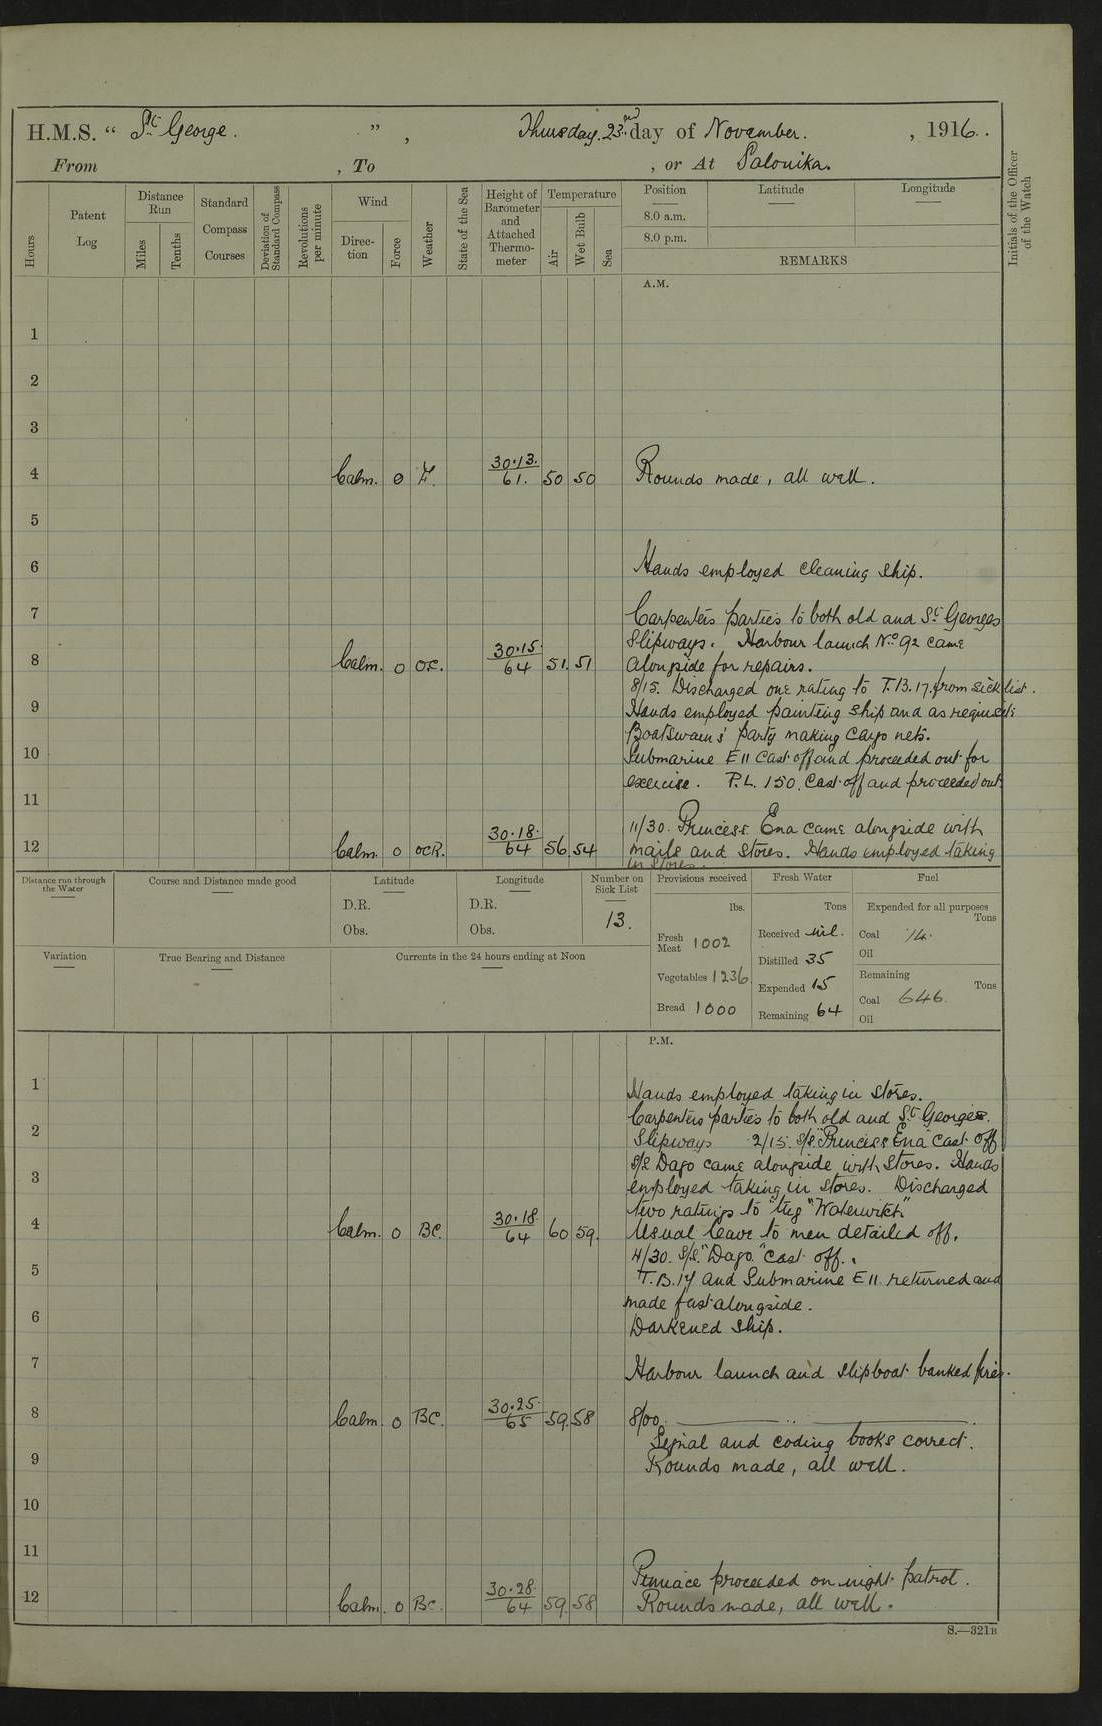 H.M.S. “ St George. ” , Thursday. 23rd day of November. , 1916.
From , To , or At Salonika.
Hours
Patent Log
Distance Run
Miles
Tenths
Standard Compass Courses
Deviation of Standard Compass
Revolutions per minute
Wind
Direction
Force
Weather
State of the Sea
Height of Barometer and Attached Thermometer
Temperature
Air
Wet Bulb
Sea
Position
8.0 a.m.
8.0 p.m.
Latitude
Longitude
REMARKS
Initials of the Officer of the Watch
A.M.
1
2
3
4 Calm. 0 Z. 30.13. 61. 50 50 Rounds made, all well.
5
6 Hands employed cleaning ship.
7 Carpenters parties to both old and St Georges
Slipways. Harbour launch No 92 came
8 Calm. 0 OF. 30.15. 64 51. 51 alongside for repairs.
8/15. Discharged one rating to T.B.17. from sick list.
9 Hands employed painting ship and as requisite
Boatswains' party making cargo nets.
10 Submarine E11 cast off and proceeded out for
exercise. P.L. 150. Cast off and proceeded out.
11
11/30. Princess Ena came alongside with
12 Calm. 0 OCR. 30.18. 64 56. 54 mails and stores. Hands employed taking
in stores.
Distance run through the Water
Course and Distance made good
Latitude
D.R.
Obs.
Longitude
D.R.
Obs.
Number on Sick List
13.
Provisions received
lbs.
Fresh Meat 1002
Vegetables 1236
Bread 1000
Fresh Water
Tons
Received nil.
Distilled 35
Expended 15
Remaining 64
Fuel
Expended for all purposes
Tons
Coal 14.
Oil
Remaining
Tons
Coal 646.
Oil
Variation
True Bearing and Distance
Currents in the 24 hours ending at Noon
P.M.
1 Hands employed taking in stores.
Carpenters parties to both old and St Georges.
2 Slipways 2/15. S/S. "Princess Ena" cast off
S/S Dago came alongside with Stores. Hands
3 employed taking in stores. Discharged
two ratings to tug "Waterwitch"
4 Calm. 0 BC. 30.18 64 60 59. Usual leave to men detailed off.
4/30. S/S. "Dago." cast off.
5 T.B.17 and Submarine E11 returned and
made fast alongside.
6 Darkened ship.
7 Harbour launch and slipboat banked fires.
8 Calm. 0 BC. 30.25. 65 59. 58 8/00.
Signal and coding books correct.
9 Rounds made, all well.
10
11
Pinnace proceeded on night patrol.
12 Calm. 0 Bc. 30.28. 64 59. 58 Rounds made, all well.
S.—321B